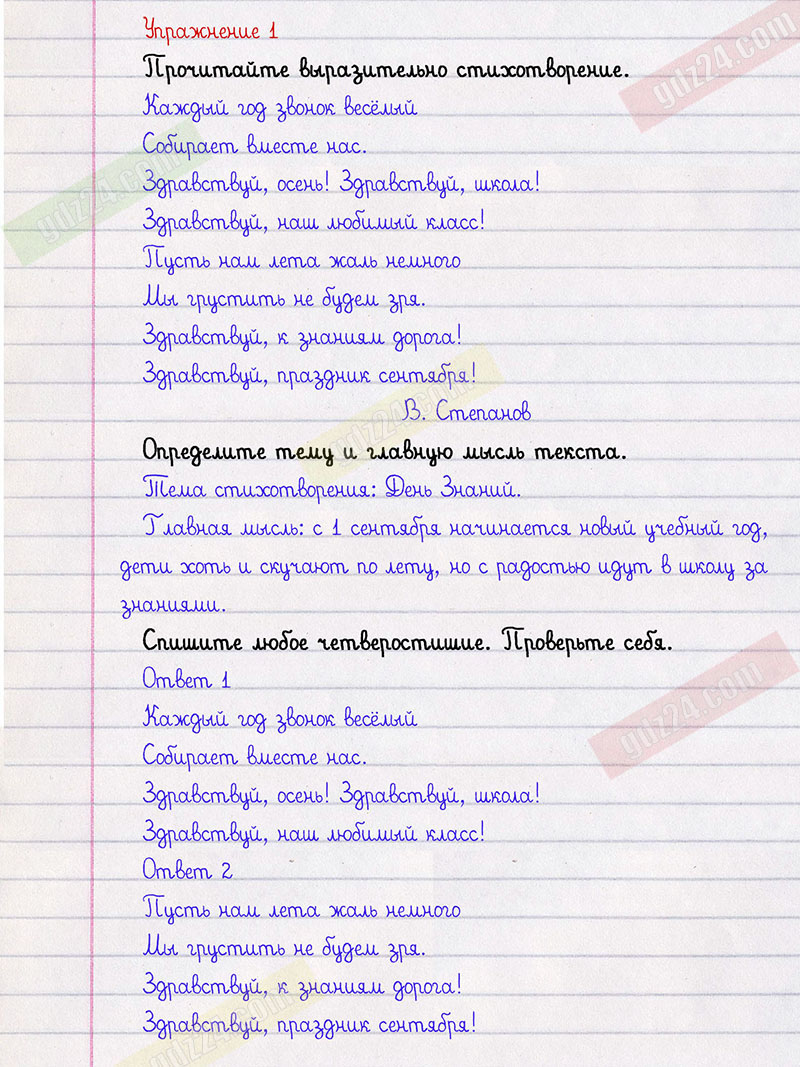 Упражнение 1
Прочитайте выразительно стихотворение.
Каждый год звонок весёлый
Собирает вместе нас.
Здравствуй, осень! Здравствуй, школа!
Здравствуй, наш любимый класс!
Пусть нам лета жаль немного
Мы грустить не будем зря.
Здравствуй, к знаниям дорога!
Здравствуй, праздник сентября!
В. Степанов
Определите тему и главную мысль текста.
Тема стихотворения: День Знаний.
Главная мысль: с 1 сентября начинается новый учебный год,
дети хоть и скучают по лету, но с радостью идут в школу за
знаниями.
Спишите любое четверостишие. Проверьте себя.
Ответ 1
Каждый год звонок весёлый
Собирает вместе нас.
Здравствуй, осень! Здравствуй, школа!
Здравствуй, наш любимый класс!
Ответ 2
Пусть нам лета жаль немного
Мы грустить не будем зря.
Здравствуй, к знаниям дорога!
Здравствуй, праздник сентября!
gdz24.com
gdz24.com
gdz24.com
gdz24.com
gdz24.com